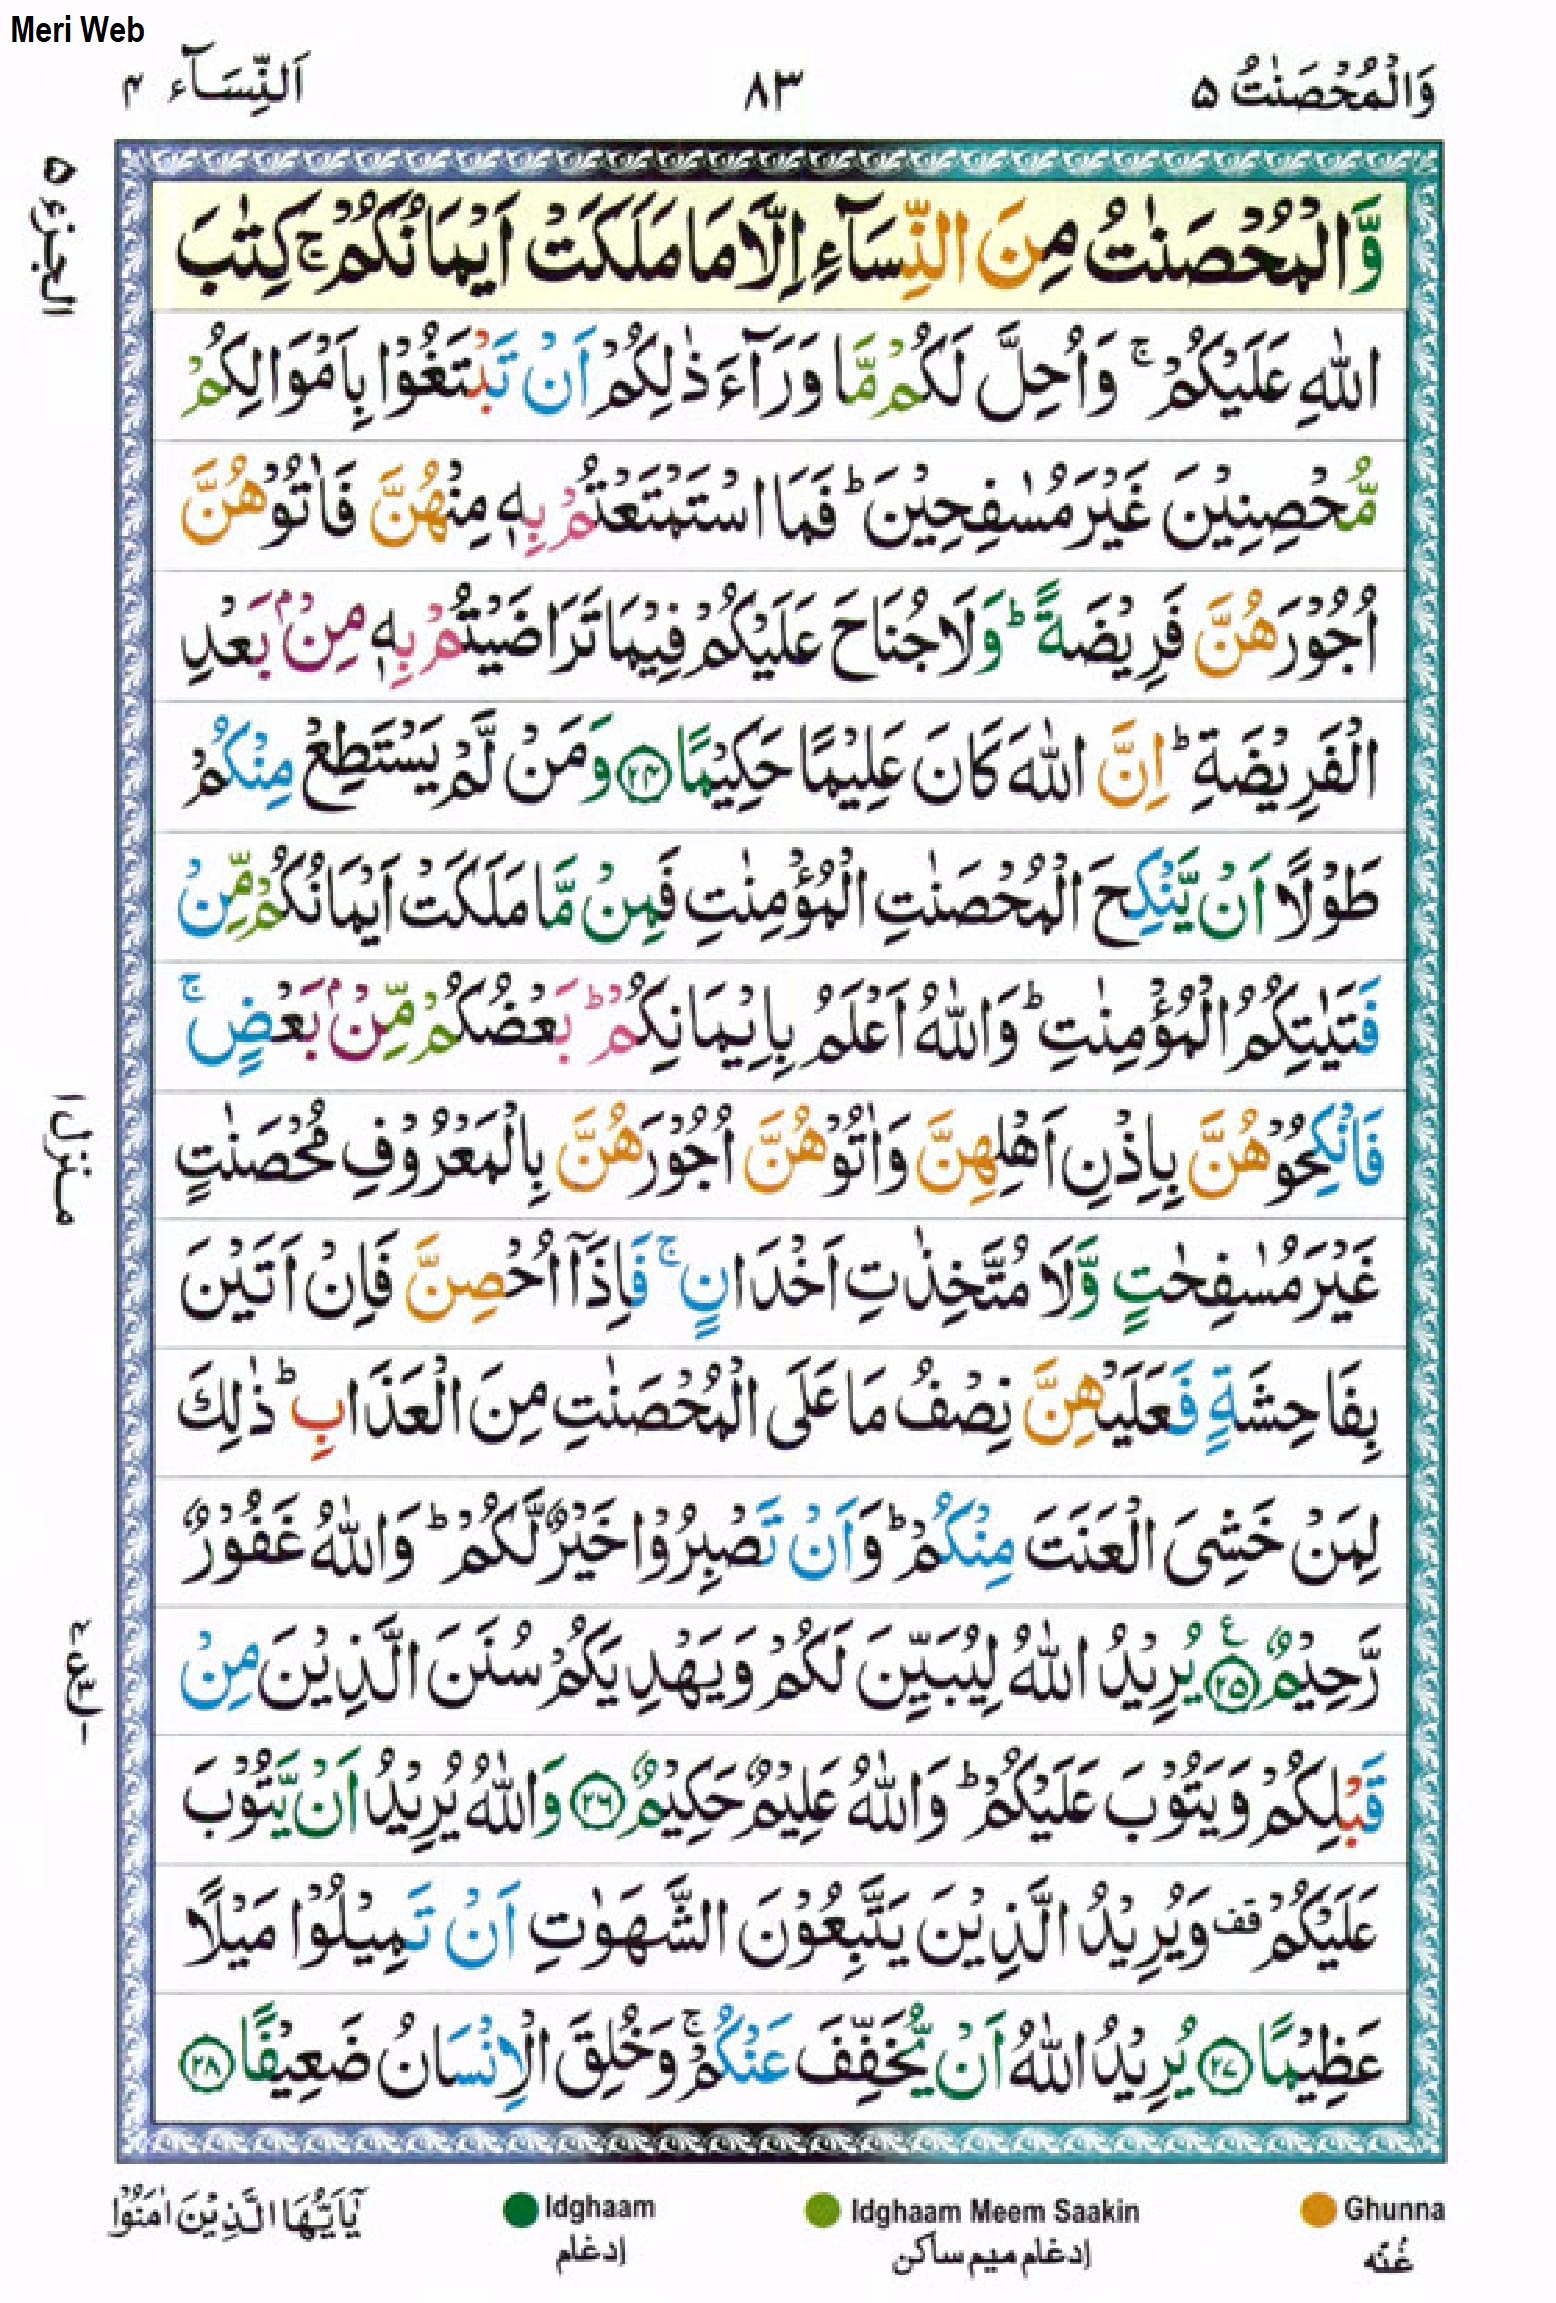 Meri Web
وَالْمُحْصَنٰتُ ۵
۸۳
اَلنِّسَآء ۴
الجزء ۵
وَّالْمُحْصَنٰتُ مِنَ النِّسَآءِ اِلَّا مَا مَلَكَتْ اَيْمَانُكُمْ ۚ كِتٰبَ
اللّٰهِ عَلَيْكُمْ ۚ وَاُحِلَّ لَكُمْ مَّا وَرَآءَ ذٰلِكُمْ اَنْ تَبْتَغُوْا بِاَمْوَالِكُمْ
مُّحْصِنِيْنَ غَيْرَ مُسٰفِحِيْنَ ؕ فَمَا اسْتَمْتَعْتُمْ بِهٖ مِنْهُنَّ فَاٰتُوْهُنَّ
اُجُوْرَهُنَّ فَرِيْضَةً ؕ وَلَا جُنَاحَ عَلَيْكُمْ فِيْمَا تَرَاضَيْتُمْ بِهٖ مِنْۢ بَعْدِ
الْفَرِيْضَةِ ؕ اِنَّ اللّٰهَ كَانَ عَلِيْمًا حَكِيْمًا ۲۴ وَمَنْ لَّمْ يَسْتَطِعْ مِنْكُمْ
طَوْلًا اَنْ يَّنْكِحَ الْمُحْصَنٰتِ الْمُؤْمِنٰتِ فَمِنْ مَّا مَلَكَتْ اَيْمَانُكُمْ مِّنْ
فَتَيٰتِكُمُ الْمُؤْمِنٰتِ ؕ وَاللّٰهُ اَعْلَمُ بِاِيْمَانِكُمْ ؕ بَعْضُكُمْ مِّنْۢ بَعْضٍ ۚ
فَانْكِحُوْهُنَّ بِاِذْنِ اَهْلِهِنَّ وَاٰتُوْهُنَّ اُجُوْرَهُنَّ بِالْمَعْرُوْفِ مُحْصَنٰتٍ
غَيْرَ مُسٰفِحٰتٍ وَّلَا مُتَّخِذٰتِ اَخْدَانٍ ۚ فَاِذَاۤ اُحْصِنَّ فَاِنْ اَتَيْنَ
بِفَاحِشَةٍ فَعَلَيْهِنَّ نِصْفُ مَا عَلَى الْمُحْصَنٰتِ مِنَ الْعَذَابِ ؕ ذٰلِكَ
لِمَنْ خَشِىَ الْعَنَتَ مِنْكُمْ ؕ وَاَنْ تَصْبِرُوْا خَيْرٌ لَّكُمْ ؕ وَاللّٰهُ غَفُوْرٌ
رَّحِيْمٌ ۲۵ يُرِيْدُ اللّٰهُ لِيُبَيِّنَ لَكُمْ وَيَهْدِيَكُمْ سُنَنَ الَّذِيْنَ مِنْ
قَبْلِكُمْ وَيَتُوْبَ عَلَيْكُمْ ؕ وَاللّٰهُ عَلِيْمٌ حَكِيْمٌ ۲۶ وَاللّٰهُ يُرِيْدُ اَنْ يَّتُوْبَ
عَلَيْكُمْ قف وَيُرِيْدُ الَّذِيْنَ يَتَّبِعُوْنَ الشَّهَوٰتِ اَنْ تَمِيْلُوْا مَيْلًا
عَظِيْمًا ۲۷ يُرِيْدُ اللّٰهُ اَنْ يُّخَفِّفَ عَنْكُمْ ۚ وَخُلِقَ الْاِنْسَانُ ضَعِيْفًا ۲۸
منزل ۱
Ghunna
غُنّه
Idghaam Meem Saakin
إدغام ميم ساكن
Idghaam
إدغام
يٰۤاَيُّهَا الَّذِيْنَ اٰمَنُوْا